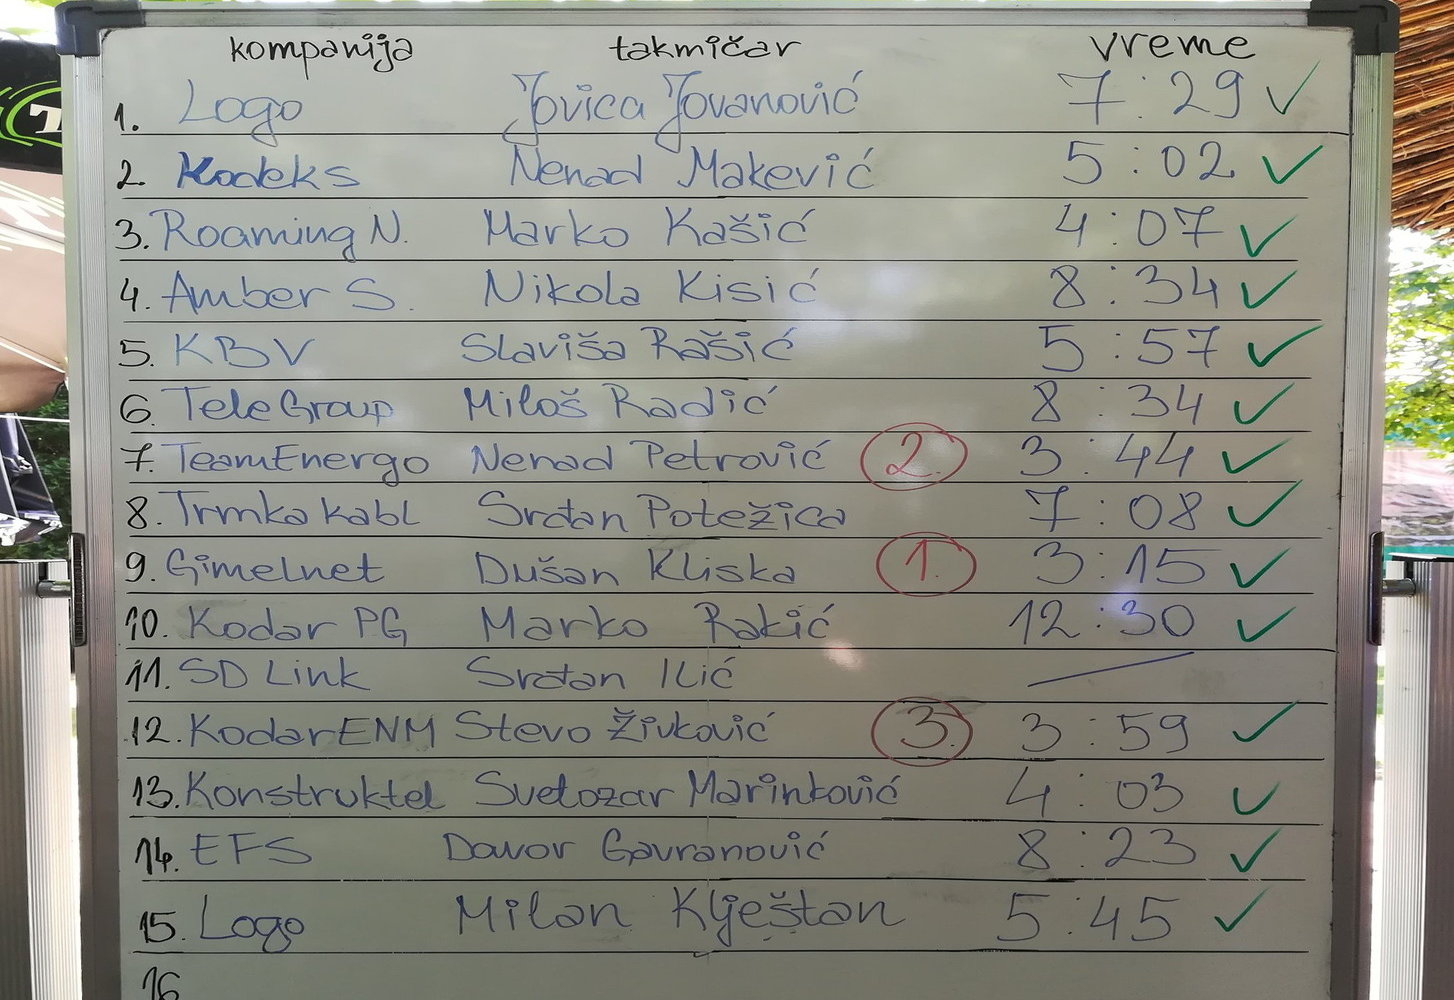 kompanija takmičar vreme
1. Logo Jovica Jovanović 7:29 ✓
2. Kodeks Nenad Makević 5:02 ✓
3. Roaming N. Marko Kašić 4:07 ✓
4. Amber S. Nikola Kisić 8:34 ✓
5. KBV Slaviša Rašić 5:57 ✓
6. TeleGroup Miloš Radić 8:34 ✓
7. TeamEnergo Nenad Petrović 2. 3:44 ✓
8. Trmka kabl Srđan Potežica 7:08 ✓
9. Gimelnet Dušan Kliska 1. 3:15 ✓
10. Kodar PG Marko Rakić 12:30 ✓
11. SD Link Srđan Ilić —
12. KodarENM Stevo Živković 3. 3:59 ✓
13. Konstruktel Svetozar Marinković 4:03 ✓
14. EFS Davor Gavranović 8:23 ✓
15. Logo Milan Klještan 5:45 ✓
16